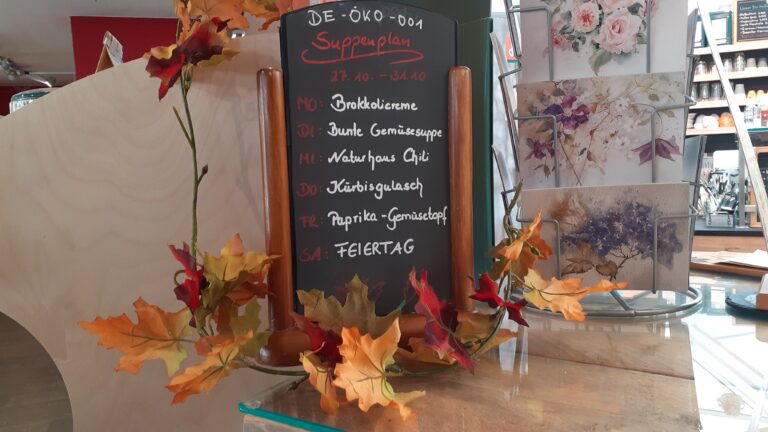 DE-ÖKO-001
Suppenplan
27.10. - 31.10
MO: Brokkolicreme
DI: Bunte Gemüsesuppe
MI: Naturhaus Chili
DO: Kürbisgulasch
FR: Paprika-Gemüsetopf
SA: FEIERTAG